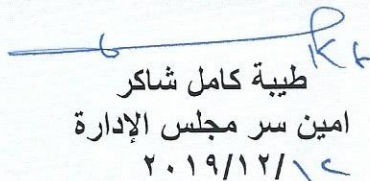 طيبة كامل شاكر
امين سر مجلس الإدارة
٢٠١٩/١٢/١٢